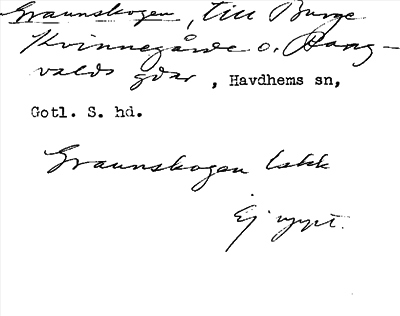 Graunskogen, till Burge
Kvinnegårde o. Rang-
valds gdar, Havdhems sn,
Gotl. S. hd.
Graunskogen
Ej uppt.